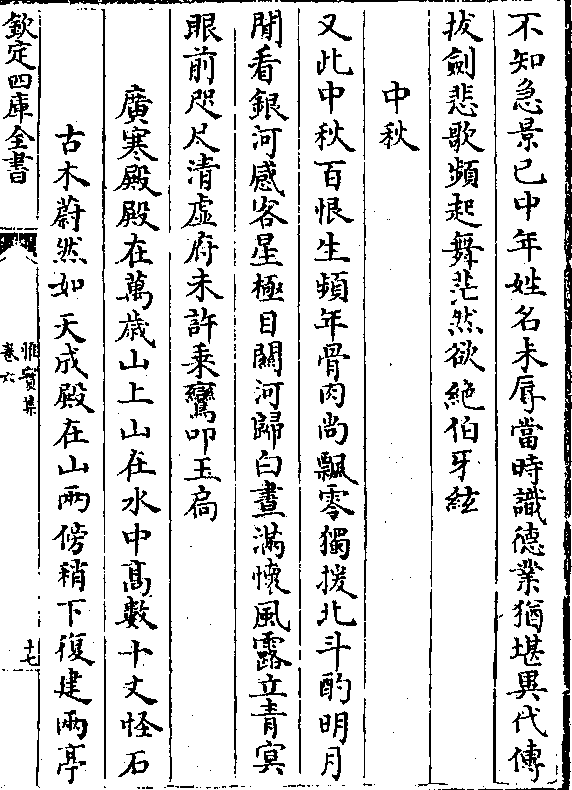 不知急景已中年姓名未辱當時識德業猶堪異代傳
拔劍悲歌頻起舞茫然欲絶伯牙絃
中秋
又此中秋百恨生頻年骨肉尚飄零獨援北斗酌明月
閒看銀河感客星極目關河歸白晝滿懷風露立青冥
眼前咫尺清虛府未許乗鸞叩玉扃
廣寒殿殿在萬歳山上山在水中髙數十丈怪石
古木蔚然如天成殿在山兩傍稍下復建兩亭
欽定四庫全書
惟實集
卷六
十七